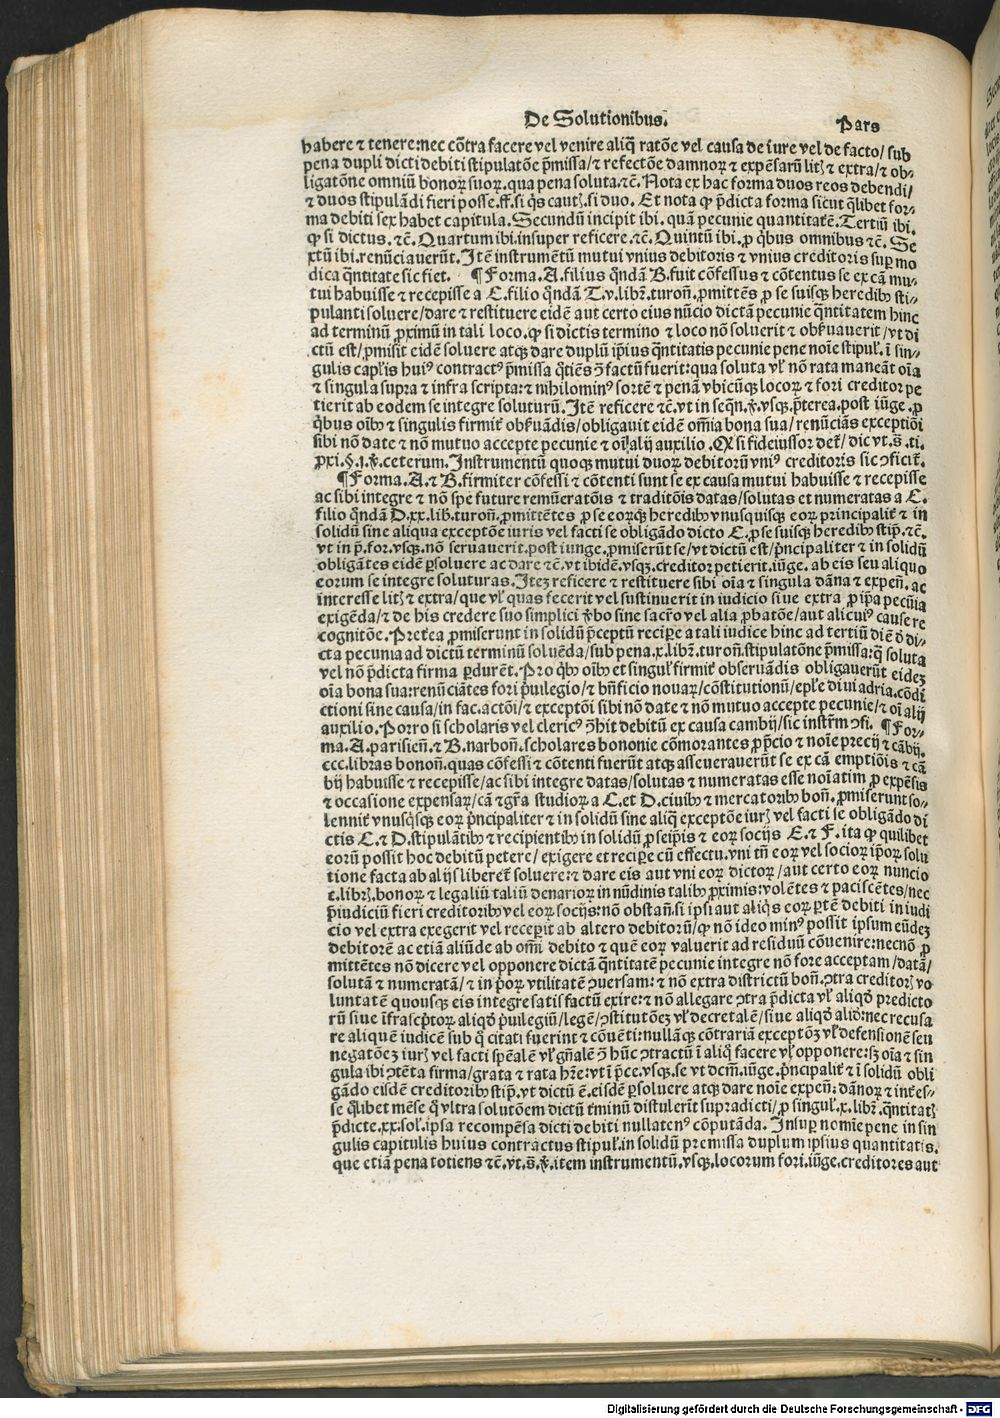 De Solutionibus.
Pars
habere ⁊ tenere:nec cōtra facere vel venire aliq̄ ratōe vel causa de iure vel de facto/ sub
pena dupli dicti debiti stipulatōe p̄missa/⁊ refectōe damnoꝝ ⁊ expēsarū litꝭ ⁊ extra/⁊ ob-
ligatōne omniū bonoꝝ suoꝝ.qua pena soluta.⁊c̄. Nota ex hac forma duos reos debendi/
⁊ duos stipulādi fieri posse.ff.si q̄s cautꝭ.si duo. Et nota ꝙ p̄dicta forma sicut q̄libet for-
ma debiti sex habet capitula.Secundū incipit ibi. quā pecunie quantitatē.Tertiū ibi.
ꝙ si dictus.⁊c̄.Quartum ibi.insuper reficere.⁊c̄.Quintū ibi.ꝓ q̄bus omnibus ⁊c̄.Se
xtū ibi.renūciauerūt.Itē instrumētū mutui vnius debitoris ⁊ vnius creditoris suꝑ mo
dica q̄ntitate sic fiet. ¶Forma.A.filius q̄ndā B.fuit cōfessus ⁊ cōtentus se ex cā mu-
tui habuisse ⁊ recepisse a C.filio q̄ndā T.v.libꝝ.turoñ.ꝓmittēs ꝓ se suisqꝫ heredibꝰ sti-
pulanti soluere/dare ⁊ restituere eidē aut certo eius nūcio dictā pecunie q̄ntitatem hinc
ad terminū ꝓximū in tali loco.ꝙ si dictis termino ⁊ loco nō soluerit ⁊ obẜuauerit/vt di
ctū est/ꝓmisit eidē soluere atqꝫ dare duplū ip̄ius q̄ntitatis pecunie pene noīe stipul̄.ī sin-
gulis cap̄lis huiꝰ contractꝰ p̄missa q̄tiēs ꝯ̄ factū fuerit:qua soluta vl̄ nō rata maneāt oīa
⁊ singula supra ⁊ infra scripta:⁊ nihilominꝰ sortē ⁊ penā vbicūqꝫ locoꝝ ⁊ fori creditor pe
tierit ab eodem se integre soluturū.Itē reficere ⁊c̄.vt in seqn̄.ꝟ.vsqꝫ.p̄terea.post iūge.ꝓ
q̄bus oībꝰ ⁊ singulis firmiť obẜuādis/obligauit eidē om̄ia bona sua/renūciās exceptiōi
sibi nō date ⁊ nō mutuo accepte pecunie ⁊ oī alij auxilio.Qꝙ si fideiussor deť/dic vt.s̄.ti.
ꝓxi.§.1.ꝟ.ceterum.Instrumentū quoqꝫ mutui duoꝝ debitorū vniꝰ creditoris sic ꝯficiť.
¶Forma.A.⁊ B.firmiter cōfessi ⁊ cōtenti sunt se ex causa mutui habuisse ⁊ recepisse
ac sibi integre ⁊ nō spē future remūeratōis ⁊ traditōis datas/solutas et numeratas a C.
filio q̄ndā D.xx.lib.turoñ.ꝓmittētes ꝓ se eorqꝫ heredibꝰ vnusquisqꝫ eoꝝ principaliť ⁊ in
solidū sine aliqua exceptōe iuris vel facti se obligādo dicto C.ꝓ se suisqꝫ heredibꝰ stip̄.⁊c̄.
vt in p̄.for.vsqꝫ.nō seruauerit.post iunge.ꝓmiserūt se/vt dictū est/p̄ncipaliter ⁊ in solidū
obligātes eidē ꝑsoluere ac dare ⁊c̄.vt ibidē.vsqꝫ.creditor petierit.iūge. ab eis seu aliquo
eorum se integre soluturas.Iteꝫ reficere ⁊ restituere sibi oīa ⁊ singula dāna ⁊ expeñ. ac
interesse litꝭ ⁊ extra/que vl̄ quas fecerit vel sustinuerit in iudicio siue extra ꝓ ip̄a pecūia
exigēda/⁊ de his credere suo simplici ꝟbo sine sacr̄o vel alia ꝓbatōe/aut alicuiꝰ cause re
cognitōe.Preťea ꝓmiserunt in solidū p̄ceptū reciꝑe a tali iudice hinc ad tertiū diē ð di-
cta pecunia ad dictū terminū soluēda/sub pena.x.libꝝ.turoñ.stipulatōne p̄missa:q̄ soluta
vel nō p̄dicta firma ꝑdurēt.Pro q̄bꝰ oībꝰ et singul̄ firmiť obseruādis obligauerūt eideꝫ
oīa bona sua:renūciātes fori p̄uilegio/⁊ bn̄ficio nouaꝝ/cōstitutionū/epl̄e diui adria.cōdi
ctioni sine causa/in fac.actōi/⁊ exceptōi sibi nō date ⁊ nō mutuo accepte pecunie/⁊ oī alij
auxilio.Porro si scholaris vel clericꝰ ꝯ̄hit debitū ex causa cambij/sic instr̄m ꝯfi. ¶For-
ma.A.parisieñ.⁊ B.narboñ.scholares bononie cōmorantes ꝓp̄cio ⁊ noīe precij ⁊ cābij.
ccc.libras bonoñ.quas cōfessi ⁊ cōtenti fuerūt atqꝫ asseuerauerūt se ex cā emptiōis ⁊ cā
bij habuisse ⁊ recepisse/ac sibi integre datas/solutas ⁊ numeratas esse noīatim ꝓ expēsis
⁊ occasione expensaꝝ/cā ⁊ gr̄a studioꝝ a C.et D.ciuibꝰ ⁊ mercatoribꝰ boñ.ꝓmiserunt so-
lenniť vnusq̄sqꝫ eoꝝ p̄ncipaliter ⁊ in solidū sine aliq̄ exceptōe iurꝭ vel facti se obligādo di
ctis C.⁊ D.stipulātibꝰ ⁊ recipientibꝰ in solidū ꝓ seip̄is ⁊ eoꝝ socijs E.⁊ F.ita ꝙ quilibet
eorū possit hoc debitū petere/ exigere et reciꝑe cū effectu.vni tn̄ eoꝝ vel socioꝝ ip̄oꝝ solu
tione facta ab alijs libereť soluere:⁊ dare eis aut vni eoꝝ dictoꝝ/aut certo eoꝝ nuncio
t.librꝭ.bonoꝝ ⁊ legaliū taliū denarioꝝ in nūdinis talibꝰ ꝓximis:volētes ⁊ paciscētes/nec
p̄iudiciū fieri creditoribꝰ vel eoꝝ socijs:nō obstañ.si ipsi aut aliq̄s eoꝝ ꝑtē debiti in iudi
cio vel extra exegerit vel receꝑit ab altero debitorū/ꝙ nō ideo minꝰ possit ipsum eūdeꝫ
debitorē ac etiā aliūde ab om̄i debito ⁊ quē eoꝝ valuerit ad residuū cōuenire:necnō ꝓ
mittētes nō dicere vel opponere dictā q̄ntitatē pecunie integre nō fore acceptam/datā/
solutā ⁊ numeratā/⁊ in ip̄oꝝ vtilitatē ꝯuersam:⁊ nō extra districtū boñ.ꝯtra creditorꝭ vo
luntatē quousqꝫ eis integre satis factū exire:⁊ nō allegare ꝯtra p̄dicta vl̄ aliqð predicto
rū siue īfrascp̄toꝝ aliqð p̄uilegiū/legē/ꝯstitutōeꝫ vl̄ decretalē/siue aliqð alið:nec recusa
re aliquē iudicē sub q̄ citati fuerint ⁊ cōuēti:nullāqꝫ cōtrariā exceptōꝫ vl̄ defensionē seu
negatōeꝫ iurꝭ vel facti sp̄ealē vl̄ gn̄alē ꝯ̄ hūc ꝯtractū ī aliq̄ facere vl̄ opponere:sꝫ oīa ⁊ sin
gula ibi ꝯtēta firma/grata ⁊ rata hr̄e:vt ī p̄cc.vsqꝫ.se vt dcm̄.iūge.p̄ncipaliť ⁊ ī solidū obli
gādo eisdē creditoribꝰ stip̄.vt dictū ē.eisdē ꝑsoluere atqꝫ dare noīe expeñ:dānoꝝ ⁊ inťes-
se q̄libet mēse q̄ vltra solutōem dictū ťminū distulerīt supradicti/ꝓ singul̄.x.libꝝ.q̄ntitatꝭ
p̄dicte.xx.sol̄.ipsa recompēsa dicti debiti nullatenꝰ cōputāda. Insuꝑ nomie pene in sin
gulis capitulis huius contractus stipul̄.in solidū premissa duplum ipsius quantitatis.
que etiā pena totiens ⁊c̄.vt.s̄.ꝟ.item instrumentū.vsqꝫ.locorum fori.iūge.creditores aut
Digitalisierung gefördert durch die Deutsche Forschungsgemeinschaft - DFG